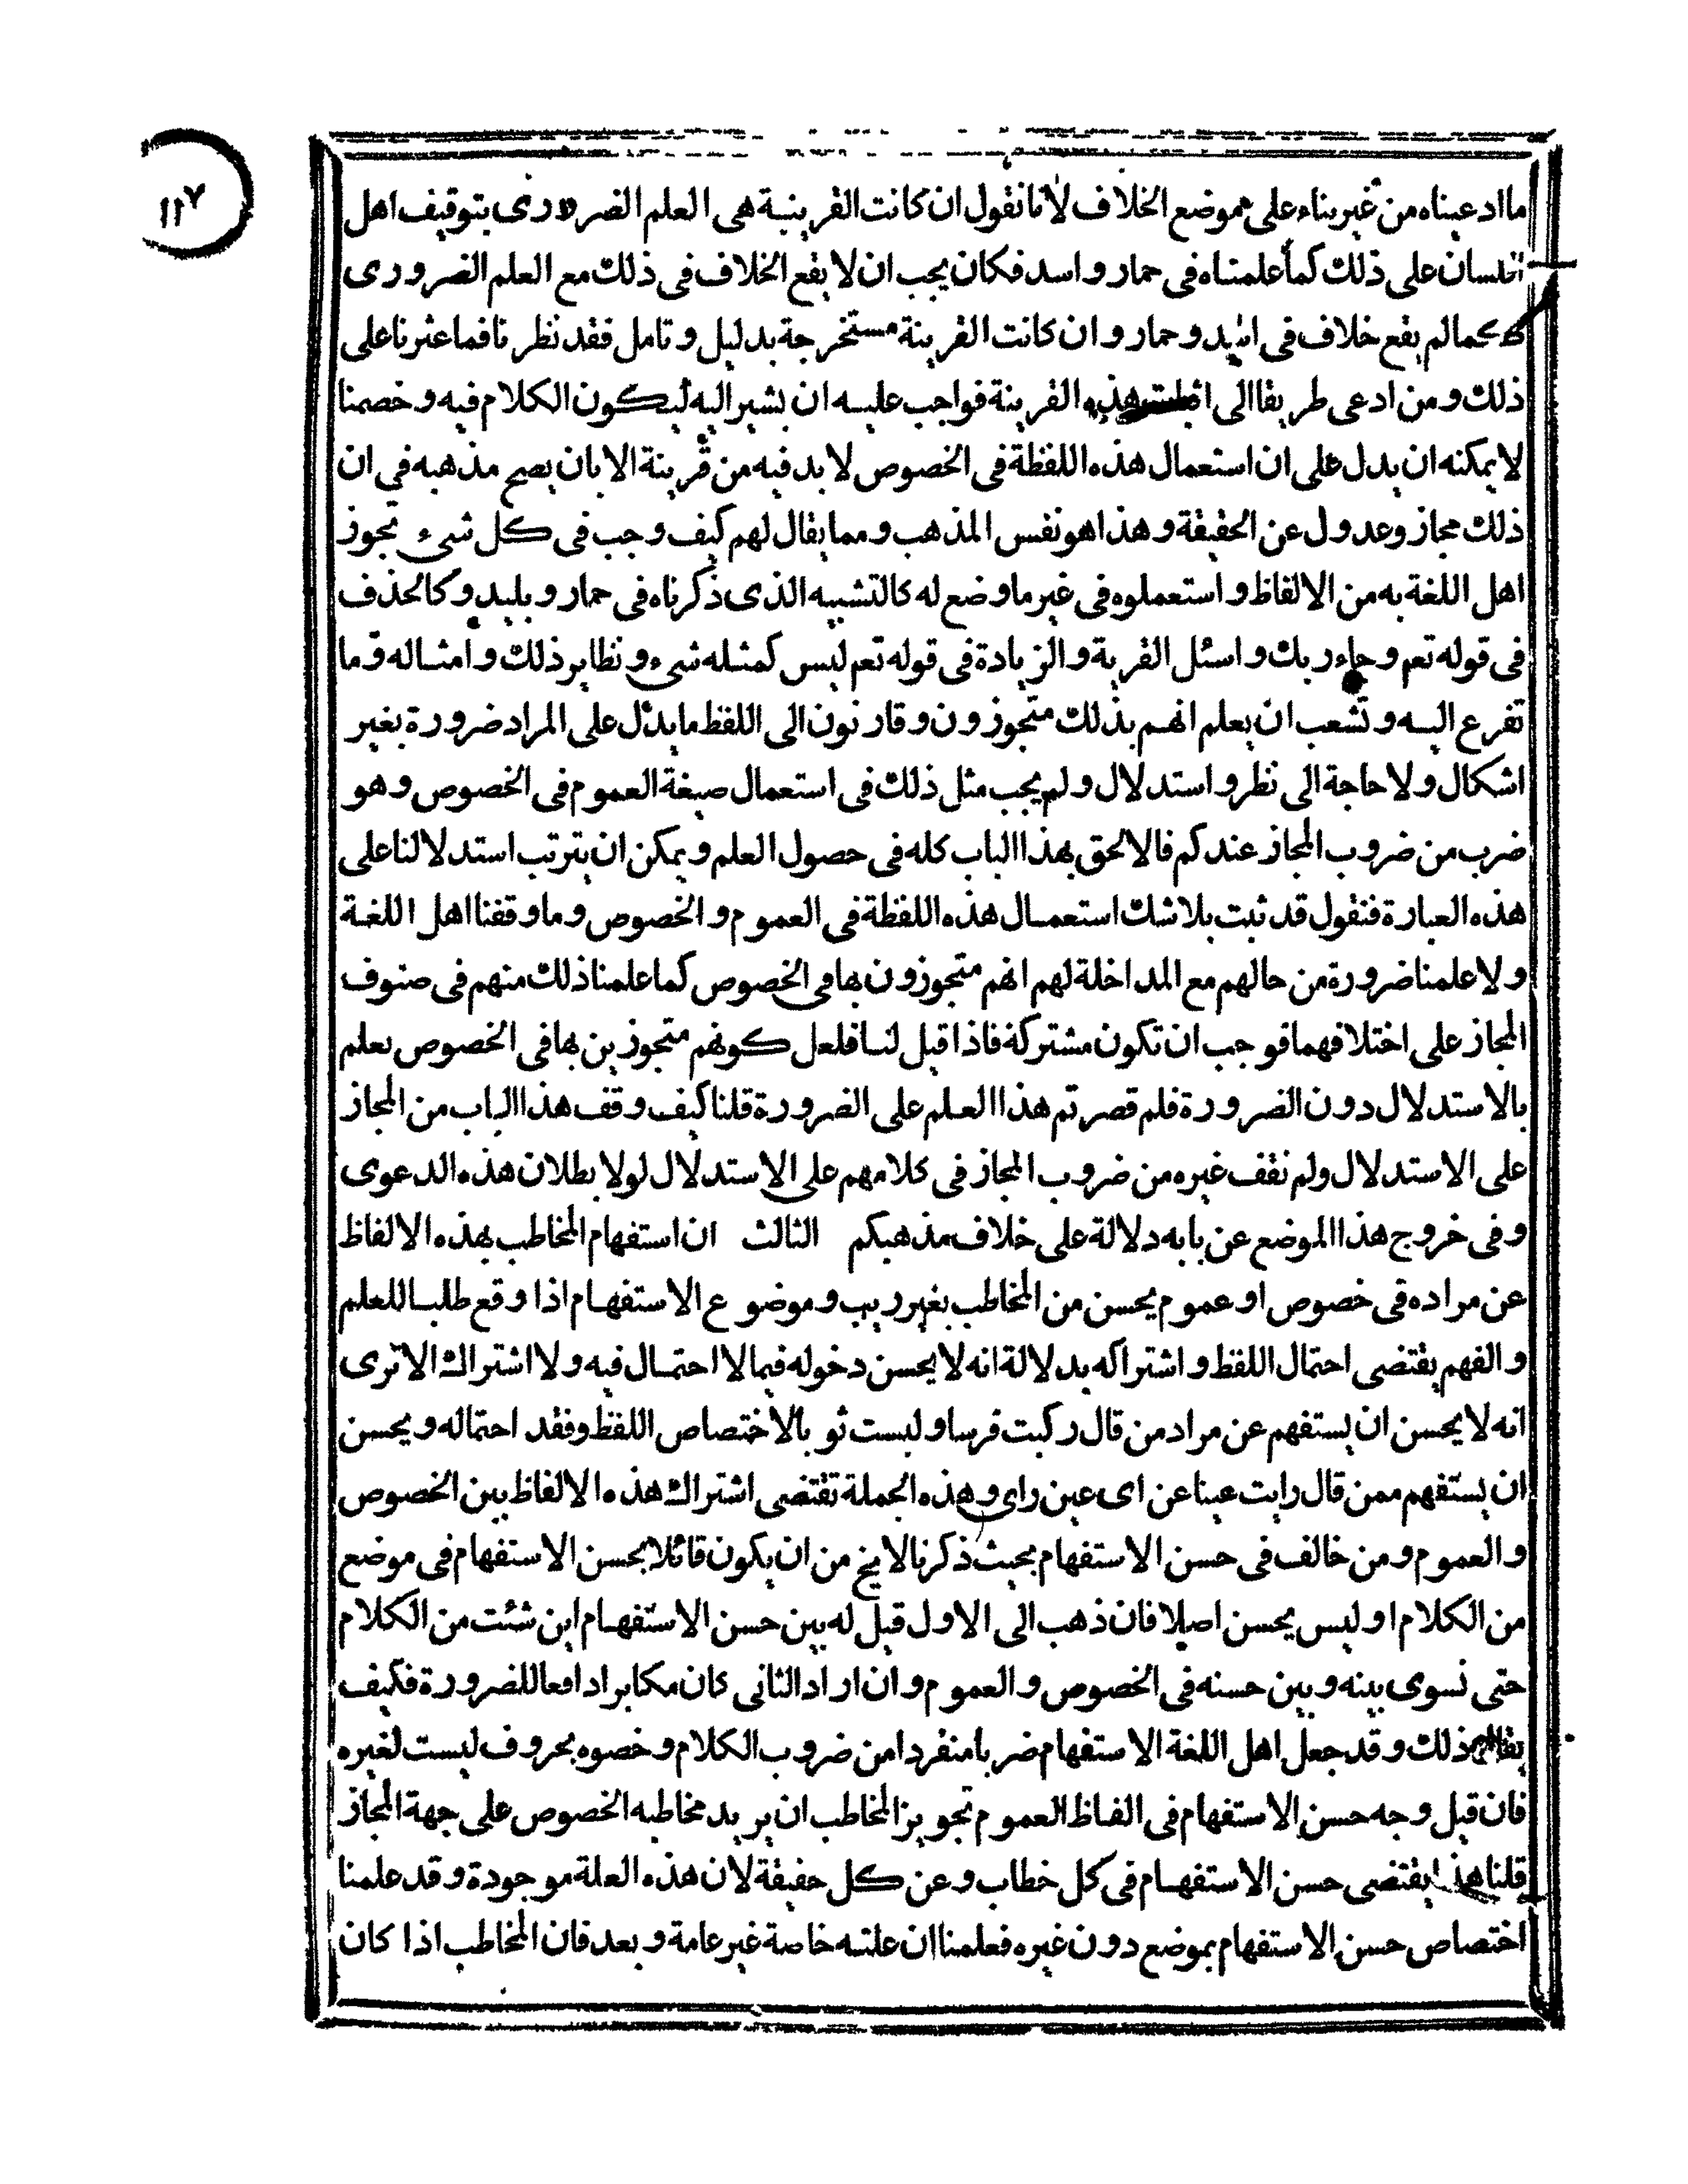 ١١٧
ما ادعيناه من غير بناء على موضع الخلاف لانا نقول ان كانت القرينة هى العلم الضرورى بتوقيف اهل
اللسان على ذلك كما علمناه فى حمار واسد فكان يجب ان لا يقع الخلاف فى ذلك مع العلم الضرورى
كما لم يقع خلاف فى اسد وحمار وان كانت القرينة مستخرجة بدليل وتامل فقد نظرنا فما عثرنا على
ذلك ومن ادعى طريقا الى اثبات هذه القرينة فواجب عليه ان يشير اليه ليكون الكلام فيه وخصمنا
لا يمكنه ان يدل على ان استعمال هذه اللفظة فى الخصوص لا بد فيه من قرينة الا بان يصح مذهبه فى ان
ذلك مجاز وعدول عن الحقيقة وهذا هو نفس المذهب ومما يقال لهم كيف وجب فى كل شىء تجوز
اهل اللغة به من الالفاظ واستعملوه فى غير ما وضع له كالتشبيه الذى ذكرناه فى حمار وبليد وكالحذف
فى قوله تعم وجاء ربك واسئل القرية والزيادة فى قوله تعم ليس كمثله شىء ونظاير ذلك وامثاله وما
تفرع اليه وتشعب ان يعلم انهم بذلك متجوزون وقارنون الى اللفظ ما يدل على المراد ضرورة بغير
اشكال ولا حاجة الى نظر واستدلال ولم يجب مثل ذلك فى استعمال صيغة العموم فى الخصوص وهو
ضرب من ضروب المجاز عندكم فالا لحق بهذا الباب كله فى حصول العلم ويمكن ان يترتب استدلالنا على
هذه العبارة فنقول قد ثبت بلا شك استعمال هذه اللفظة فى العموم والخصوص وما وقفنا اهل اللغة
ولا علمنا ضرورة من حالهم مع المداخلة لهم انهم متجوزون بها فى الخصوص كما علمنا ذلك منهم فى صنوف
المجاز على اختلافهما فوجب ان تكون مشتركة فاذا قيل لنا فلعل كونهم متجوزين بها فى الخصوص يعلم
بالاستدلال دون الضرورة فلم قصرتم هذا العلم على الضرورة قلنا كيف وقف هذا الباب من المجاز
على الاستدلال ولم نقف غيره من ضروب المجاز فى كلامهم على الاستدلال لولا بطلان هذه الدعوى
وفى خروج هذا الموضع عن بابه دلالة على خلاف مذهبكم الثالث ان استفهام المخاطب بهذه الالفاظ
عن مراده فى خصوص او عموم يحسن من المخاطب بغير ريب وموضوع الاستفهام اذا وقع طلبا للعلم
والفهم يقتضى احتمال اللفظ واشتراكه بدلالة انه لا يحسن دخوله فيما لا احتمال فيه ولا اشتراك الا ترى
انه لا يحسن ان يستفهم عن مراد من قال ركبت فرسا ولبست ثوبا لاختصاص اللفظ وفقد احتماله ويحسن
ان يستفهم ممن قال رايت عينا عن اى عين راى وهذه الجملة تقتضى اشتراك هذه الالفاظ بين الخصوص
والعموم ومن خالف فى حسن الاستفهام بحيث ذكرنا لا يخ من ان يكون قائلا بحسن الاستفهام فى موضع
من الكلام او ليس يحسن اصلا فان ذهب الى الاول قيل له بين حسن الاستفهام اين شئت من الكلام
حتى نسوى بينه وبين حسنه فى الخصوص والعموم وان اراد الثانى كان مكابرا دافعا للضرورة فكيف
ذلك وقد جعل اهل اللغة الاستفهام ضربا منفردا من ضروب الكلام وخصوه بحروف ليست لغيره
فان قيل وجه حسن الاستفهام فى الفاظ العموم تجويز المخاطب ان يريد مخاطبه الخصوص على جهة المجاز
قلنا هذا يقتضى حسن الاستفهام فى كل خطاب وعن كل حقيقة لان هذه العلة موجودة وقد علمنا
اختصاص حسن الاستفهام بموضع دون غيره فعلمنا ان علته خاصة غير عامة وبعد فان المخاطب اذا كان